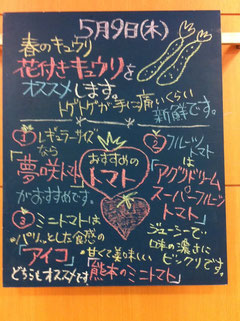 5月9日(木)
春のキュウリ
花付きキュウリを
オススメします。
トゲトゲが手に痛いくらい
新鮮です。
① レギュラーサイズ
なら
「夢咲トマト」
がおすすめです。
おすすめの
トマト
② フルーツトマト
は
「アグリドリーム
スーパーフルーツ
トマト」
ジューシーで
味の濃さに
ビックリです。
③ ミニトマトは
パリッとした食感の
「アイコ」
甘くて美味しい
「熊本のミニトマト」
どちらもオススメです